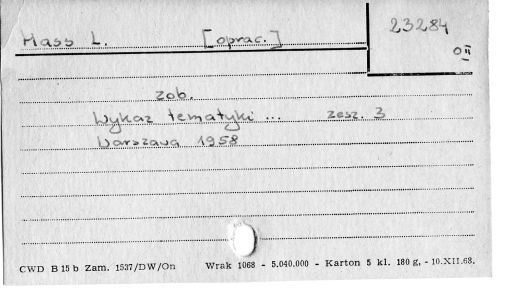 23284
Hass L. [oprac.]
OII
zob.
Wykaz tematyki ... zesz. 3
Warszawa 1958
CWD B 15 b Zam. 1537/DW/On Wrak 1068 - 5.040.000 - Karton 5 kl. 180 g, - 10.XII.68.